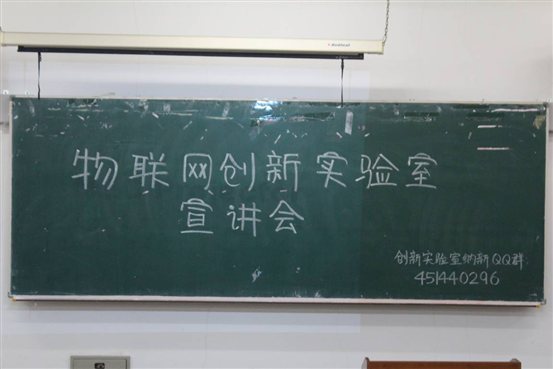 物联网创新实验室
宣讲会
创新实验室纳新QQ群
451440296